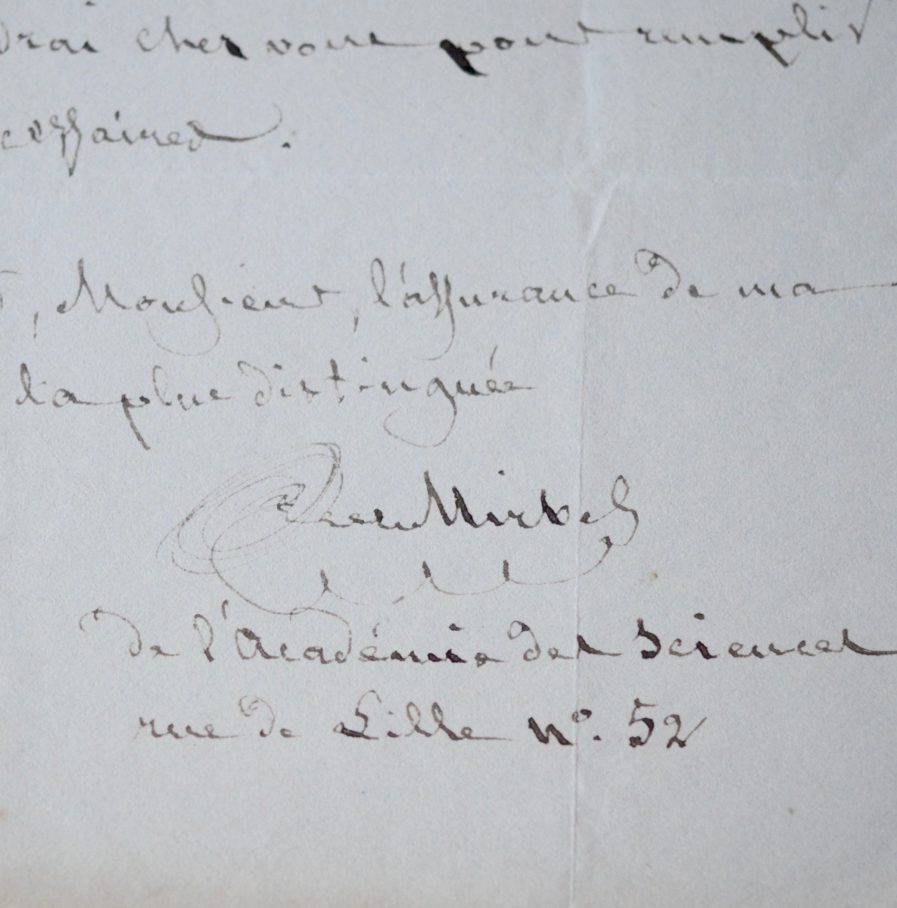 drai chez vous pour remplir
cessaires.
, Monsieur, l'assurance de ma
la plus distinguée
de Mirbel
de l'Académie des Sciences
rue de Lille n°. 52